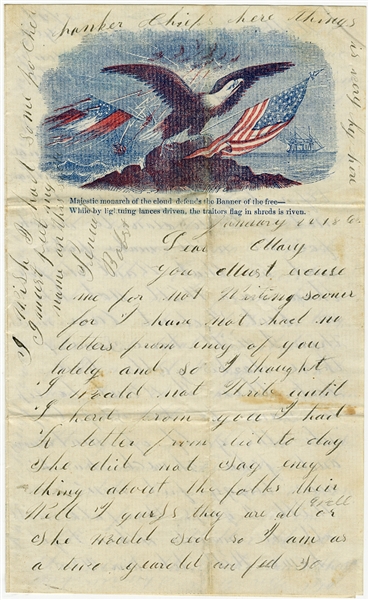 panker Chips here things
is very hy her
I wish I had some po Chick
I must put my
name on this
Senica
Boos
Majestic monarch of the cloud defends the Banner of the free—
While by lightning lances driven, the traitors flag in shreds is riven.
February
Dear Mary
You Must excuse
me for not Writing sooner
for I have not had no
letters from eny of you
lately and so I thought
I would not Write until
I herd from you I had
A letter from to day
She did not say eny
thing about the folks their
Well I guess they are all or
well
She would sed so I am as
a two yearold an fed so